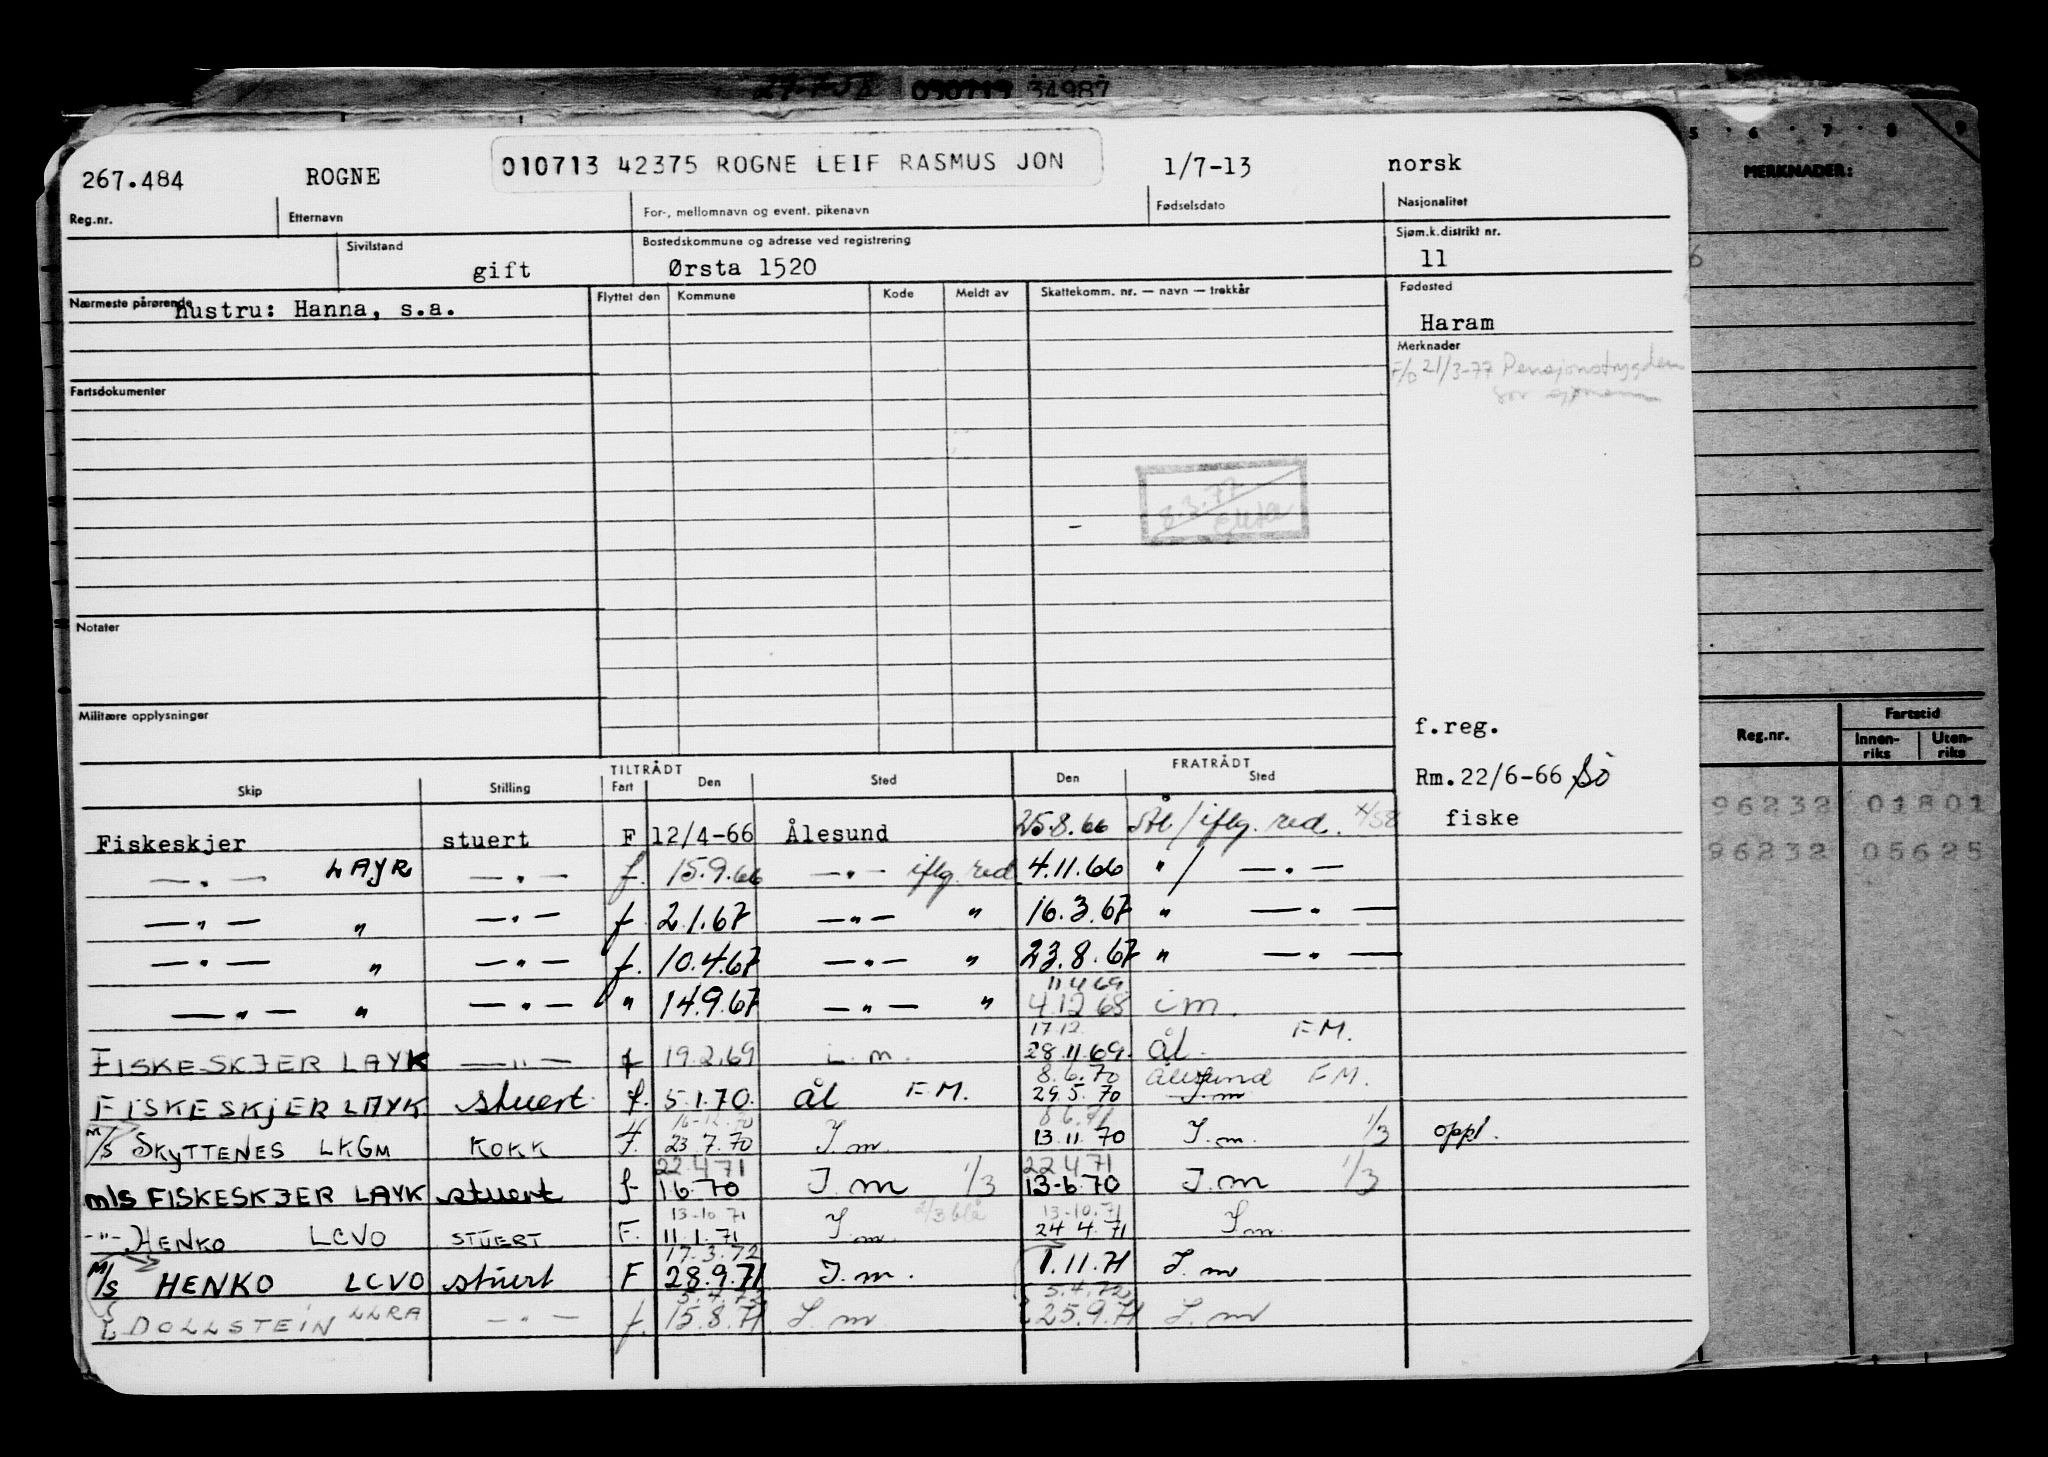 34987
267.484 ROGNE 010713 42375 ROGNE LEIF RASMUS JON 1/7-13 norsk
Reg.nr. Etternavn For-, mellomnavn og event. pikenavn Fødselsdato Nasjonalitet
Sivilstand Bostedskommune og adresse ved registrering Sjøm.k.distrikt nr.
gift Ørsta 1520 11
Nærmeste pårørende hustru: Hanna, s.a. Flyttet den Kommune Kode Meldt av Skattekomm. nr. — navn — trekkår Fødested
Haram
Merknader
21/3-77 Pensjonstrygden
Fartsdokumenter
8.3.77
Notater
Militære opplysninger
f.reg.
Rm.22/6-66 Sö
fiske
TILTRÅDT FRATRÅDT
Skip Stilling Fart Den Sted Den Sted
Fiskeskjer stuert F 12/4-66 Ålesund 25.8.66 Ål / iflg. red.
— " — LAYR — " — f. 15.9.66 — " — iflg. red 4.11.66 " / — " —
— " — " — " — f 2.1.67 — " — " 16.3.67 " — " —
— " — " — " — f. 10.4.67 — " — " 23.8.67 " — " —
11.4.69
— " — " — " — " 14.9.67 — " — " 4.12 68 i m.
17.12.
FISKESKJER LAYK — " — f 19.2.69 i. m. 28.11.69. Ål. F M.
8.6.70 Ålesund F M.
FISKESKJER LAYK stuert. f. 5.1.70. Ål F M. 29.5.70 I.m
16-12-70 8.6.71
M/S SKYTTENES LKGM KOKK f. 23.7.70 I.m. 13.11.70 I.m. 1/3 oppl.
22.4.71 22.4.71
m/s FISKESKJER LAYK stuert f 1.6.70 I.m 1/3 13-6.70 I.m 1/3
13-10.71 2/3 blå 13-10.71
- " - HENKO LCVO STUERT F. 11.1.71 I.m. 24.4.71 I.m.
17.3.72
M/S HENKO LCVO stuert F 28.9.71 I.m. 1.11.71 I.m
5.4.72 5.4.72
DOLLSTEIN LLRA — " — f. 15.8.71 I.m. 25.9.71 I.m
5 6 7 8 9
MERKNADER:
6
Reg.nr. Fartstid
Innen-riks Uten-riks
96232 01801
96232 05625